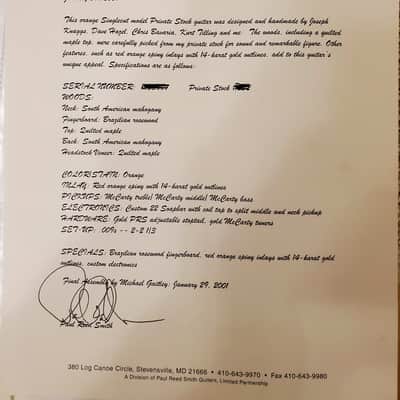 This orange Singlecut model Private Stock guitar was designed and handmade by Joseph
Knaggs, Dave Hazel, Chris Bavaria, Kurt Tilling and me. The woods, including a quilted
maple top, were carefully picked from my private stock for sound and remarkable figure. Other
features, such as red orange spiny inlays with 14-karat gold outlines, add to this guitar's
unique appeal. Specifications are as follows:
SERIAL NUMBER: Private Stock
WOODS:
Neck: South American mahogany
Fingerboard: Brazilian rosewood
Top: Quilted maple
Back: South American mahogany
Headstock Veneer: Quilted maple
COLOR/STAIN: Orange
INLAY: Red orange spiny with 14-karat gold outlines
PICKUPS: McCarty treble/ McCarty middle/ McCarty bass
ELECTRONICS: Custom 22 Soapbar with coil tap to split middle and neck pickup
HARDWARE: Gold PRS adjustable stoptail, gold McCarty tuners
SET-UP: .009s -- 2-2 1/3
SPECIALS: Brazilian rosewood fingerboard, red orange spiny inlays with 14-karat gold
outlines, custom electronics
Final Assembly by Michael Gaitley: January 29, 2001
Paul Reed Smith
380 Log Canoe Circle, Stevensville, MD 21666 • 410-643-9970 • Fax 410-643-9980
A Division of Paul Reed Smith Guitars, Limited Partnership